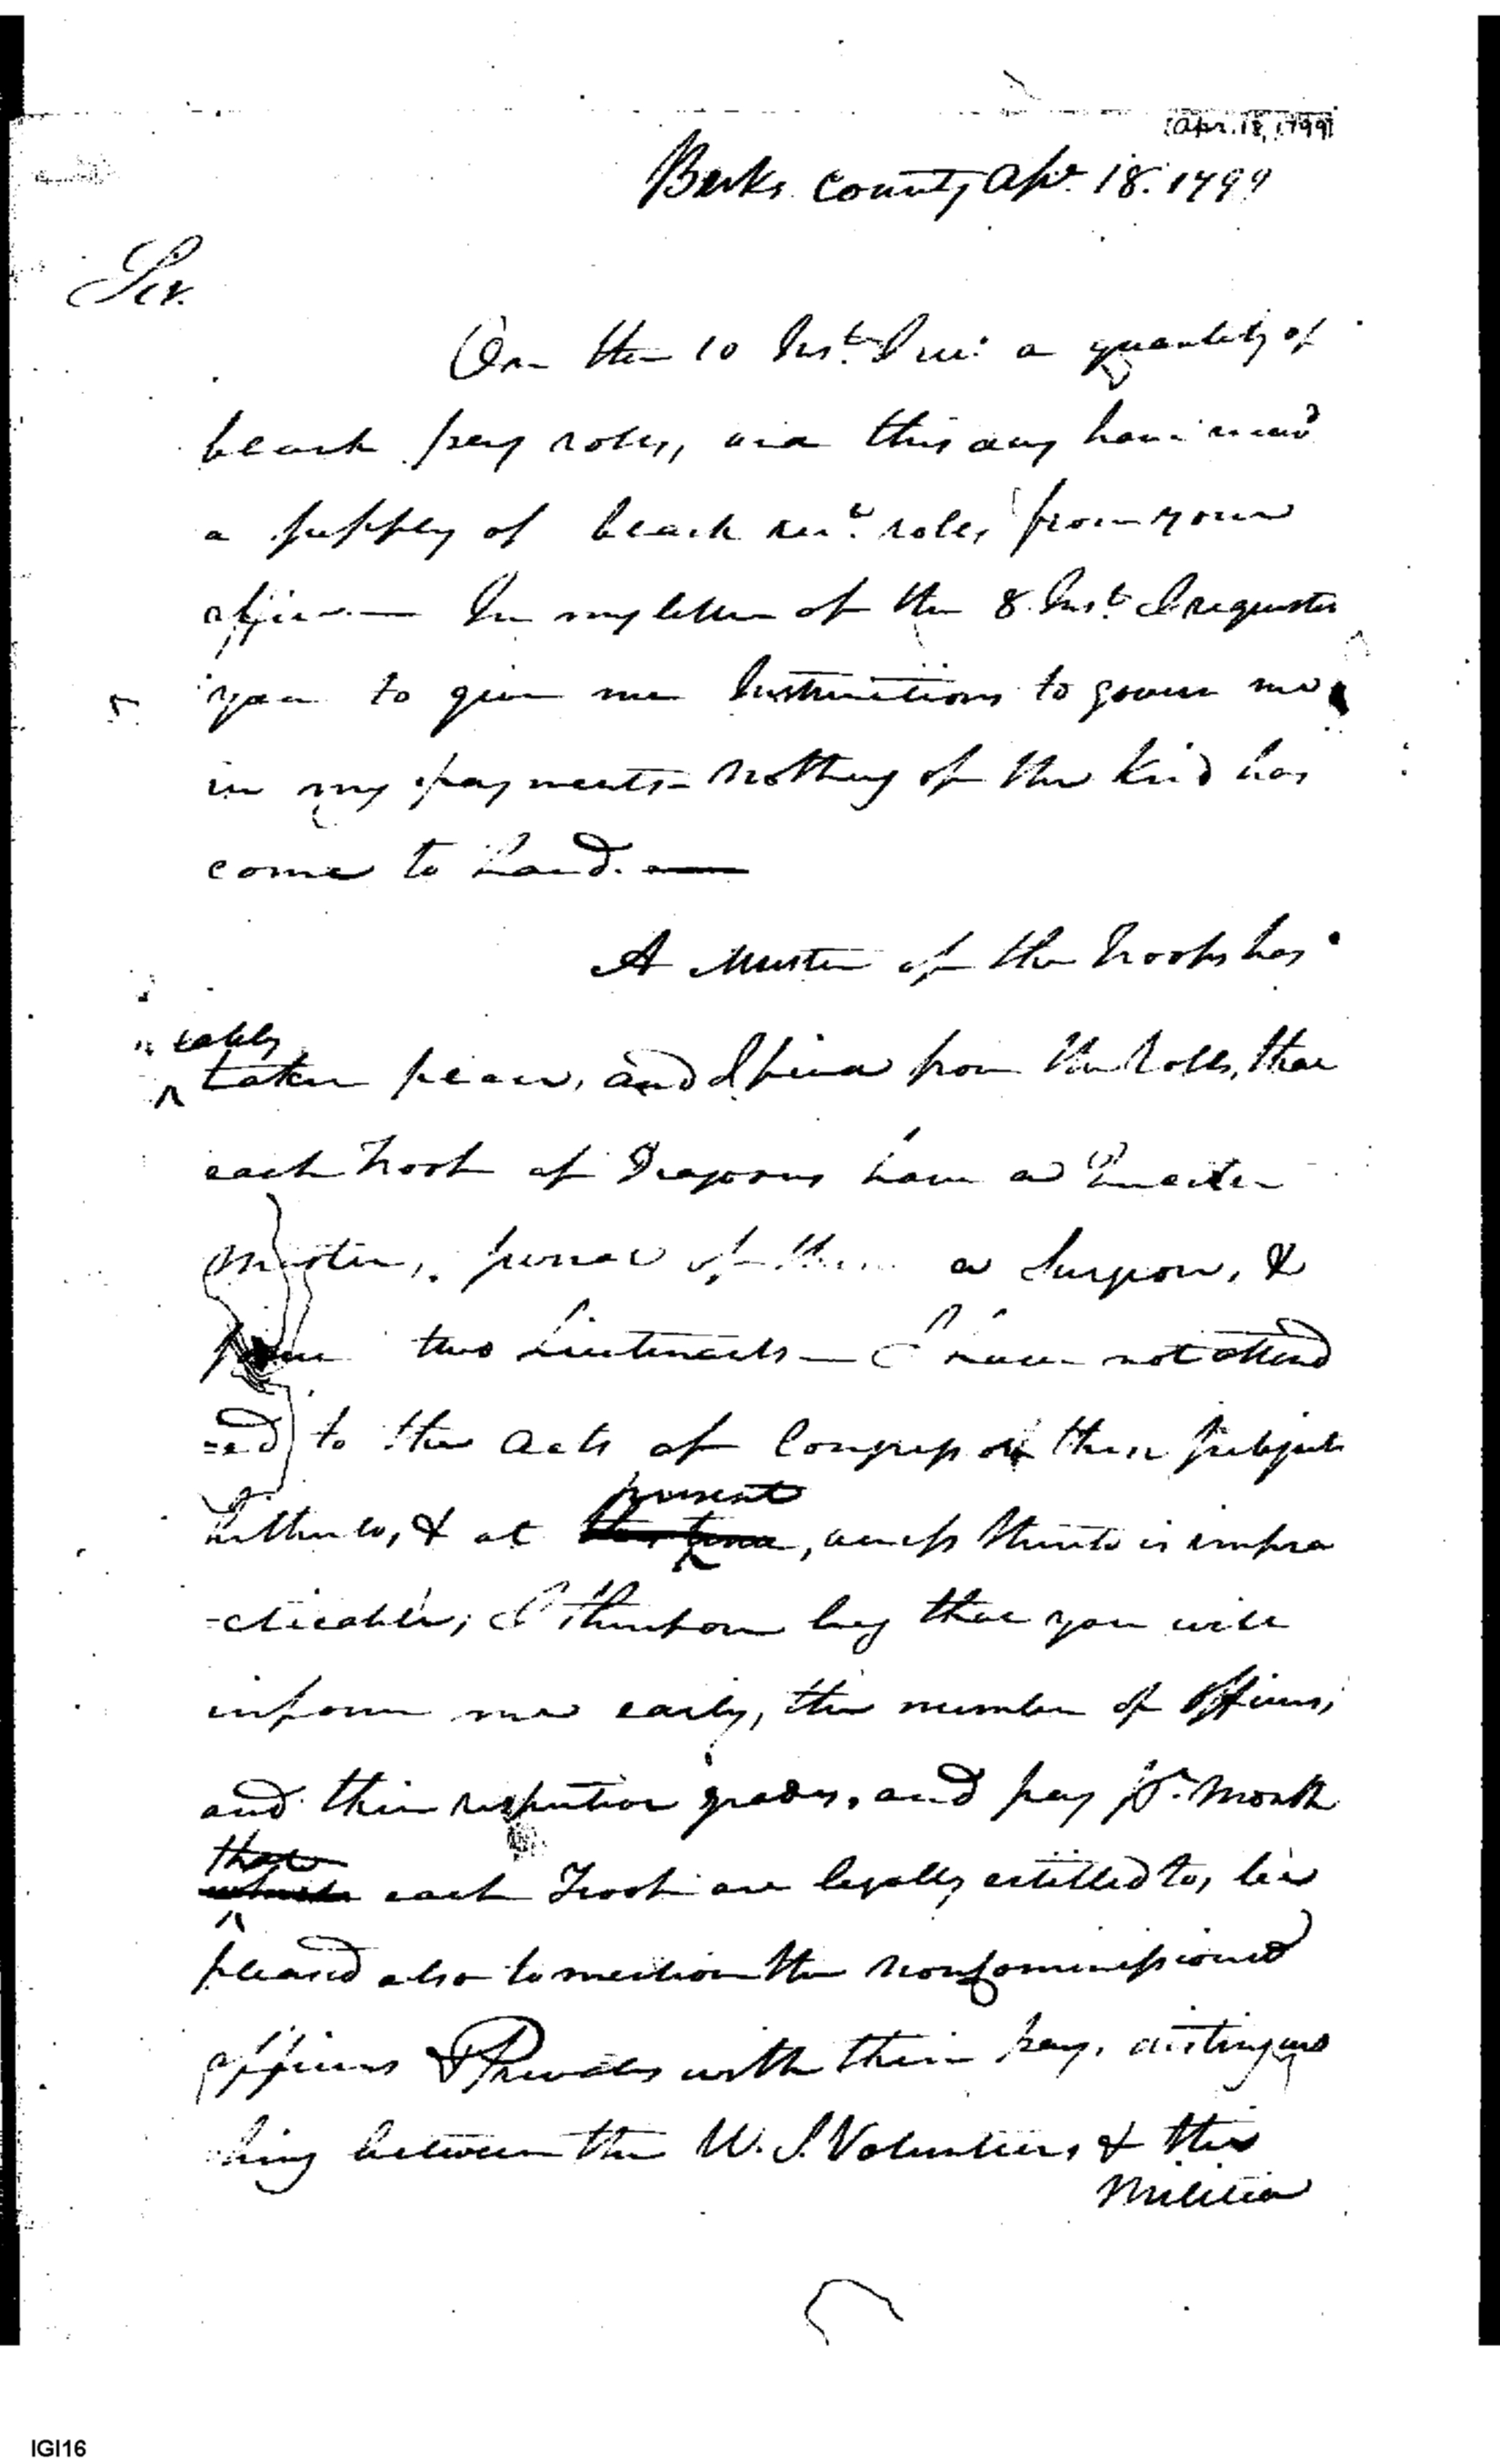 [Apr. 18, 1799]
Berks County Apr. 18. 1799
Sir.
On the 10 Inst. I recd. a quantity of
blank pay roles, and this day have recievd
a supply of blank rect. roles from your
office — In my letter of the 8 Inst. I requested
you to give me Instructions to govern me
in my payments — Nothing of the kind has
come to hand. —
A Muster of the Troops has
lately
taken place, and I find from the Rolls, that
each Troop of Dragoons have a Quarter
Master, some of them a Surgeon, &
some two Lieutenants — I have not attend
=ed to the Acts of Congress on these subjects
present
hitherto, & at this time, access thereto is impra
-cticable; I therefore beg that you will
inform me early, the number of Officers,
and their respective grades, and pay pr. Month
that
which each Troop are legally entitled to, be
pleased also to mention the noncommissioned
officers & Privates with their pay, distinguis
hing between the U. S. Volunteers & the
Militia
IGI16